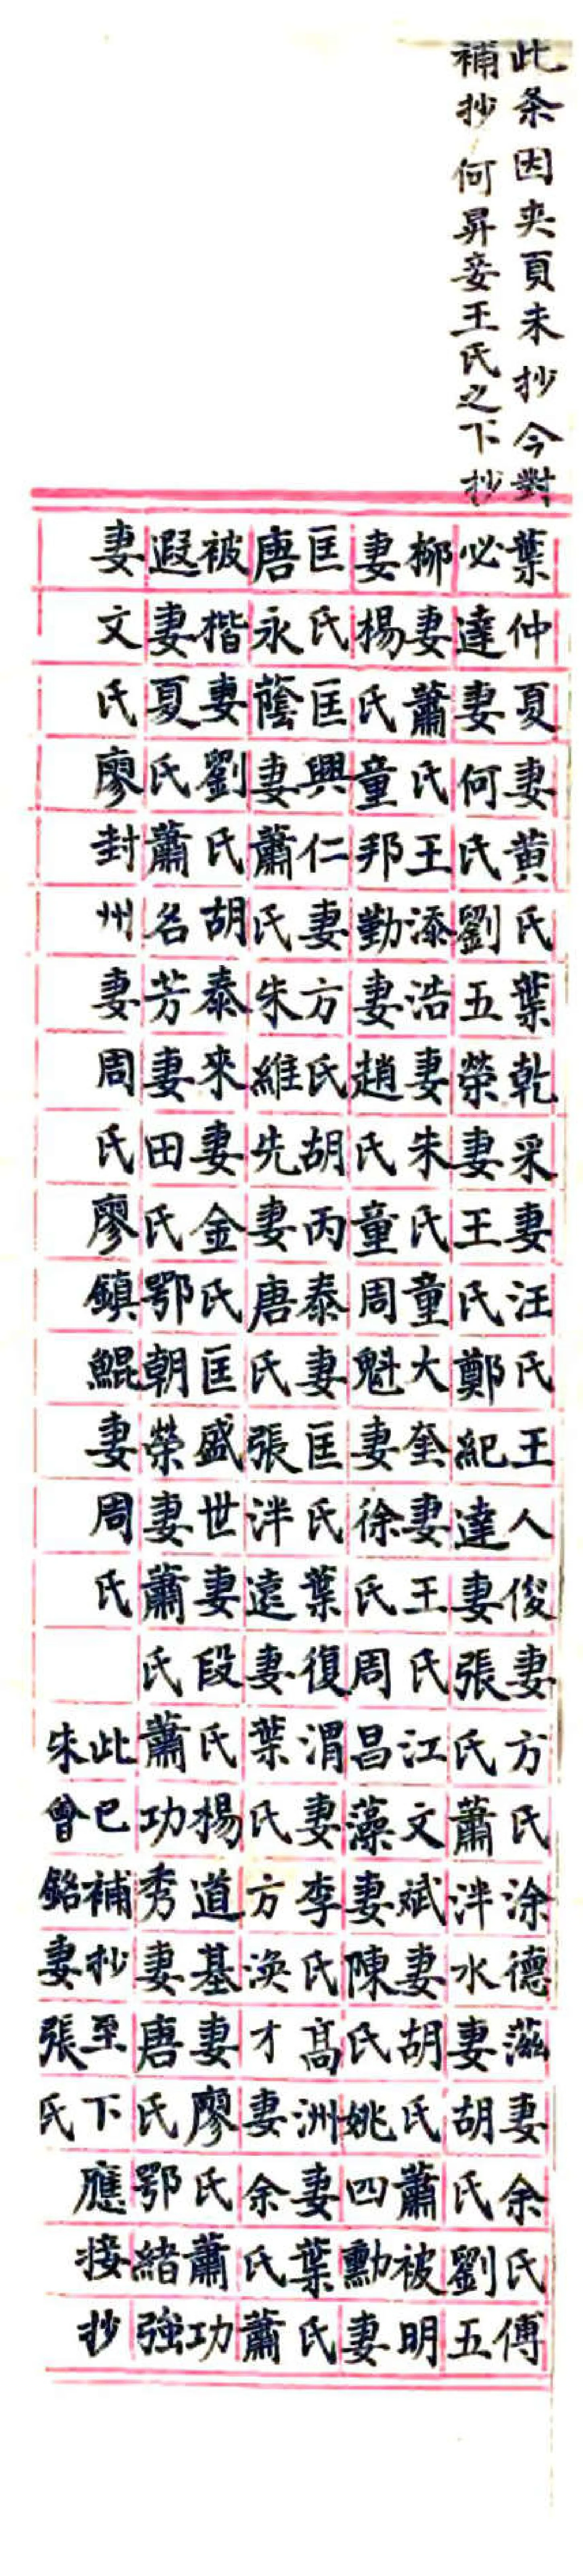 此条因夾頁未抄今對
補抄何昇妾王氏之下抄
葉仲夏妻黄氏葉乾采妻汪氏王人俊妻方氏涂德滋妻余氏傅
必達妻何氏劉五榮妻王氏鄭紀達妻張氏蕭泮水妻胡氏劉五
柳妻蕭氏王添浩妻朱氏童大奎妻王氏江文斌妻胡氏蕭被明
妻楊氏童邦勤妻趙氏童周魁妻徐氏周昌藻妻陳氏姚四勳妻
匡氏匡興仁妻方氏胡丙泰妻匡氏葉復渭妻李氏高洲妻葉氏
唐永蔭妻蕭氏朱維先妻唐氏張泮遠妻葉氏方渙才妻余氏蕭
被楷妻劉氏胡泰來妻金氏匡盛世妻段氏楊道基妻廖氏蕭功
遐妻夏氏蕭名芳妻田氏鄂朝榮妻蕭氏蕭功秀妻唐氏鄂緒強
妻文氏廖封州妻周氏廖鎮鯤妻周氏
此巳補抄至下
朱曾銘妻張氏
應接抄